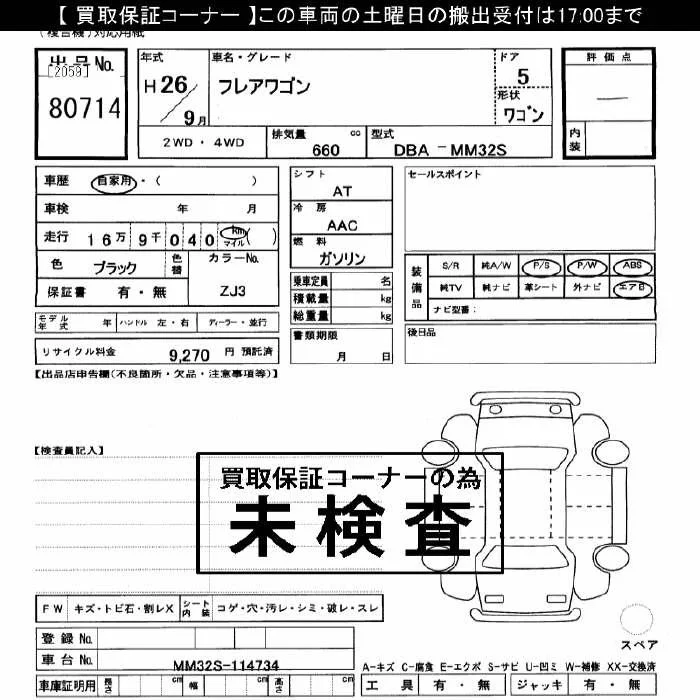 【 買取保証コーナー 】この車両の土曜日の搬出受付は17:00まで
(複合機)対応用紙
出品No.
[2059]
80714
年式
H 26
9月
車名・グレード
フレアワゴン
ドア
5
形状
ワゴン
評価点
―
内装
2WD・4WD
排気量
cc
660
型式
DBA －MM32S
車歴
自家用・(　　)
車検　年　月
走行 16万 9千 040 km マイル (　)
色 ブラック
色替
カラーNo.
ZJ3
保証書 有・無
シフト
AT
冷房
AAC
燃料
ガソリン
乗車定員 名
積載量 kg
総重量 kg
書類期限
月　日
モデル年式 年 ハンドル 左・右 ディーラー・並行
リサイクル料金 9,270 円 預託済
セールスポイント
装備品
S/R 純A/W P/S P/W ABS
純TV 純ナビ 革シート 外ナビ エアB
ナビ型番:
後日品
【出品店申告欄(不良箇所・欠品・注意事項等)】
【検査員記入】
買取保証コーナーの為
未検査
FW キズ・トビ石・割レX
シート内装 コゲ・穴・汚レ・シミ・破レ・スレ
登録No.
車台No.
MM32S-114734
車庫証明用 長さ cm 幅 cm 高さ cm
スペア
A-キズ C-腐食 E-エクボ S-サビ U-凹ミ W-補修 XX-交換済
工具 有・無 ジャッキ 有・無